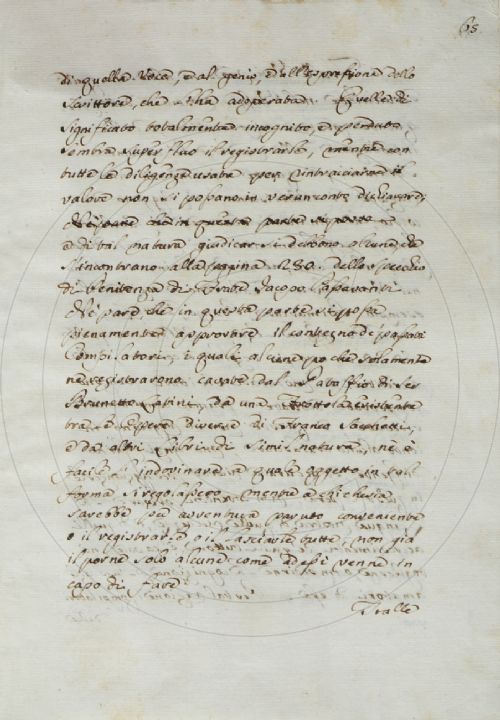 65
di quella Voce, e al genio, e all'espressione dello
Scrittore, che l'ha adoperata. Quelle di
Significato totalmente incognito, e perduto,
sembra superfluo il registrarle, mentre con
tutte le diligenze usate per rintracciarne il
valore non si possano in verun conto
che in questa parte
e di tal natura giudicar si debbono alcune, che
s'incontrano alla pagina 230. dello Specchio
di Penitenza di Frate Jacopo Passavanti
Nè pare che in questa parte si possa
pienamente approvare il contegno de' passati
Compilatori, i quali alcune poche solamente
ne registrarono cavate dal Pataffio di Ser
Brunetto Latini, da una Frottola esistente
tra le Opere diverse di Franco Sacchetti,
e da altri Libri di simil natura, nè è
facile l'indovinare a quale oggetto in tal
forma si regolassero mentre
sarebbe per avventura paruto conveniente
o il registrarle, o il lasciarle tutte, non già
il porne solo alcune come ad essi venne in
capo di fare
Tralle